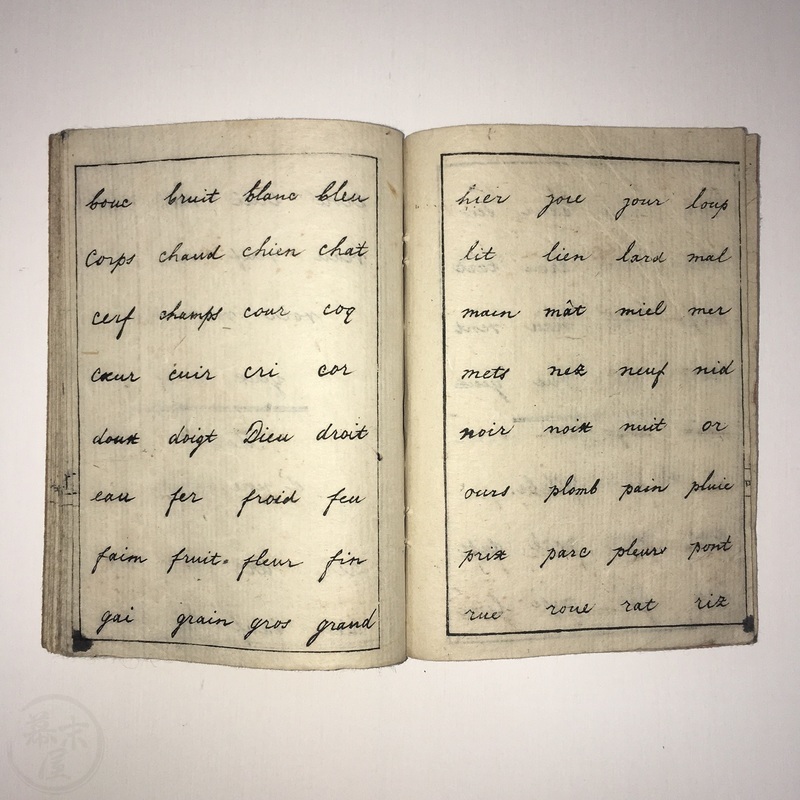 bouc bruit blanc bleu
corps chaud chien chat
cerf champs cour coq
cœur cuir cri cor
doux doigt Dieu droit
eau fer froid feu
faim fruit fleur fin
gai grain gros grand
hier joie jour loup
lit lien lard mal
main mât miel mer
mets nez neuf nid
noir noix nuit or
ours plomb pain pluie
prix parc pleurs pont
rue roue rat riz
幕末屋